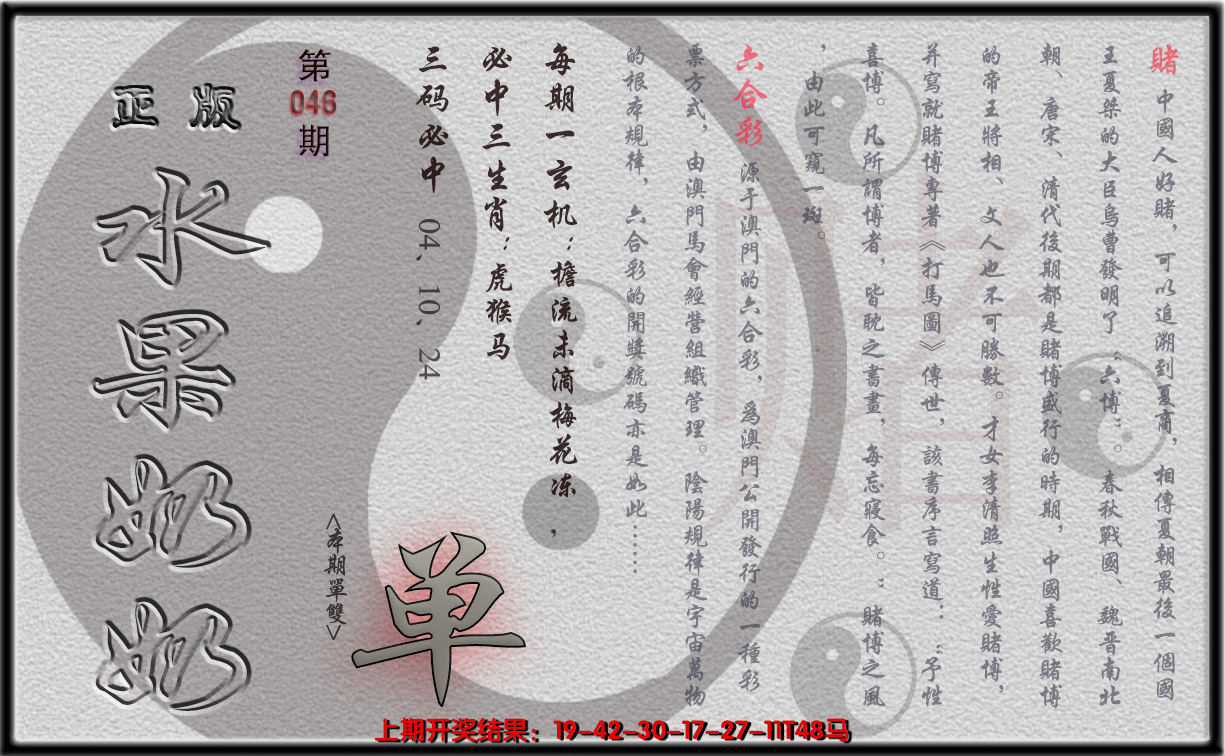 賭 中國人好賭，可以追溯到夏商，相傳夏朝最後一個國
王夏桀的大臣烏曹發明了“六博”。春秋戰國、魏晋南北
朝、唐宋、清代後期都是賭博盛行的時期，中國喜歡賭博
的帝王將相、文人也不可勝數。才女李清照生性愛賭博，
并寫就賭博專著《打馬圖》傳世，該書序言寫道：“予性
喜博。凡所謂博者，皆耽之書畫，每忘寢食。”賭博之風
，由此可窺一斑。
六合彩 源于澳門的六合彩，爲澳門公開發行的一種彩
票方式，由澳門馬會經營組織管理。陰陽規律是宇宙萬物
的根本規律，六合彩的開獎號碼亦是如此……
每期一玄机：檐流未滴梅花冻，
必中三生肖：虎猴马
三码必中 04、10、24
第
046
期
正版
水果奶奶
<本期單雙>
单
赌
上期开奖结果：19-42-30-17-27-11T48马